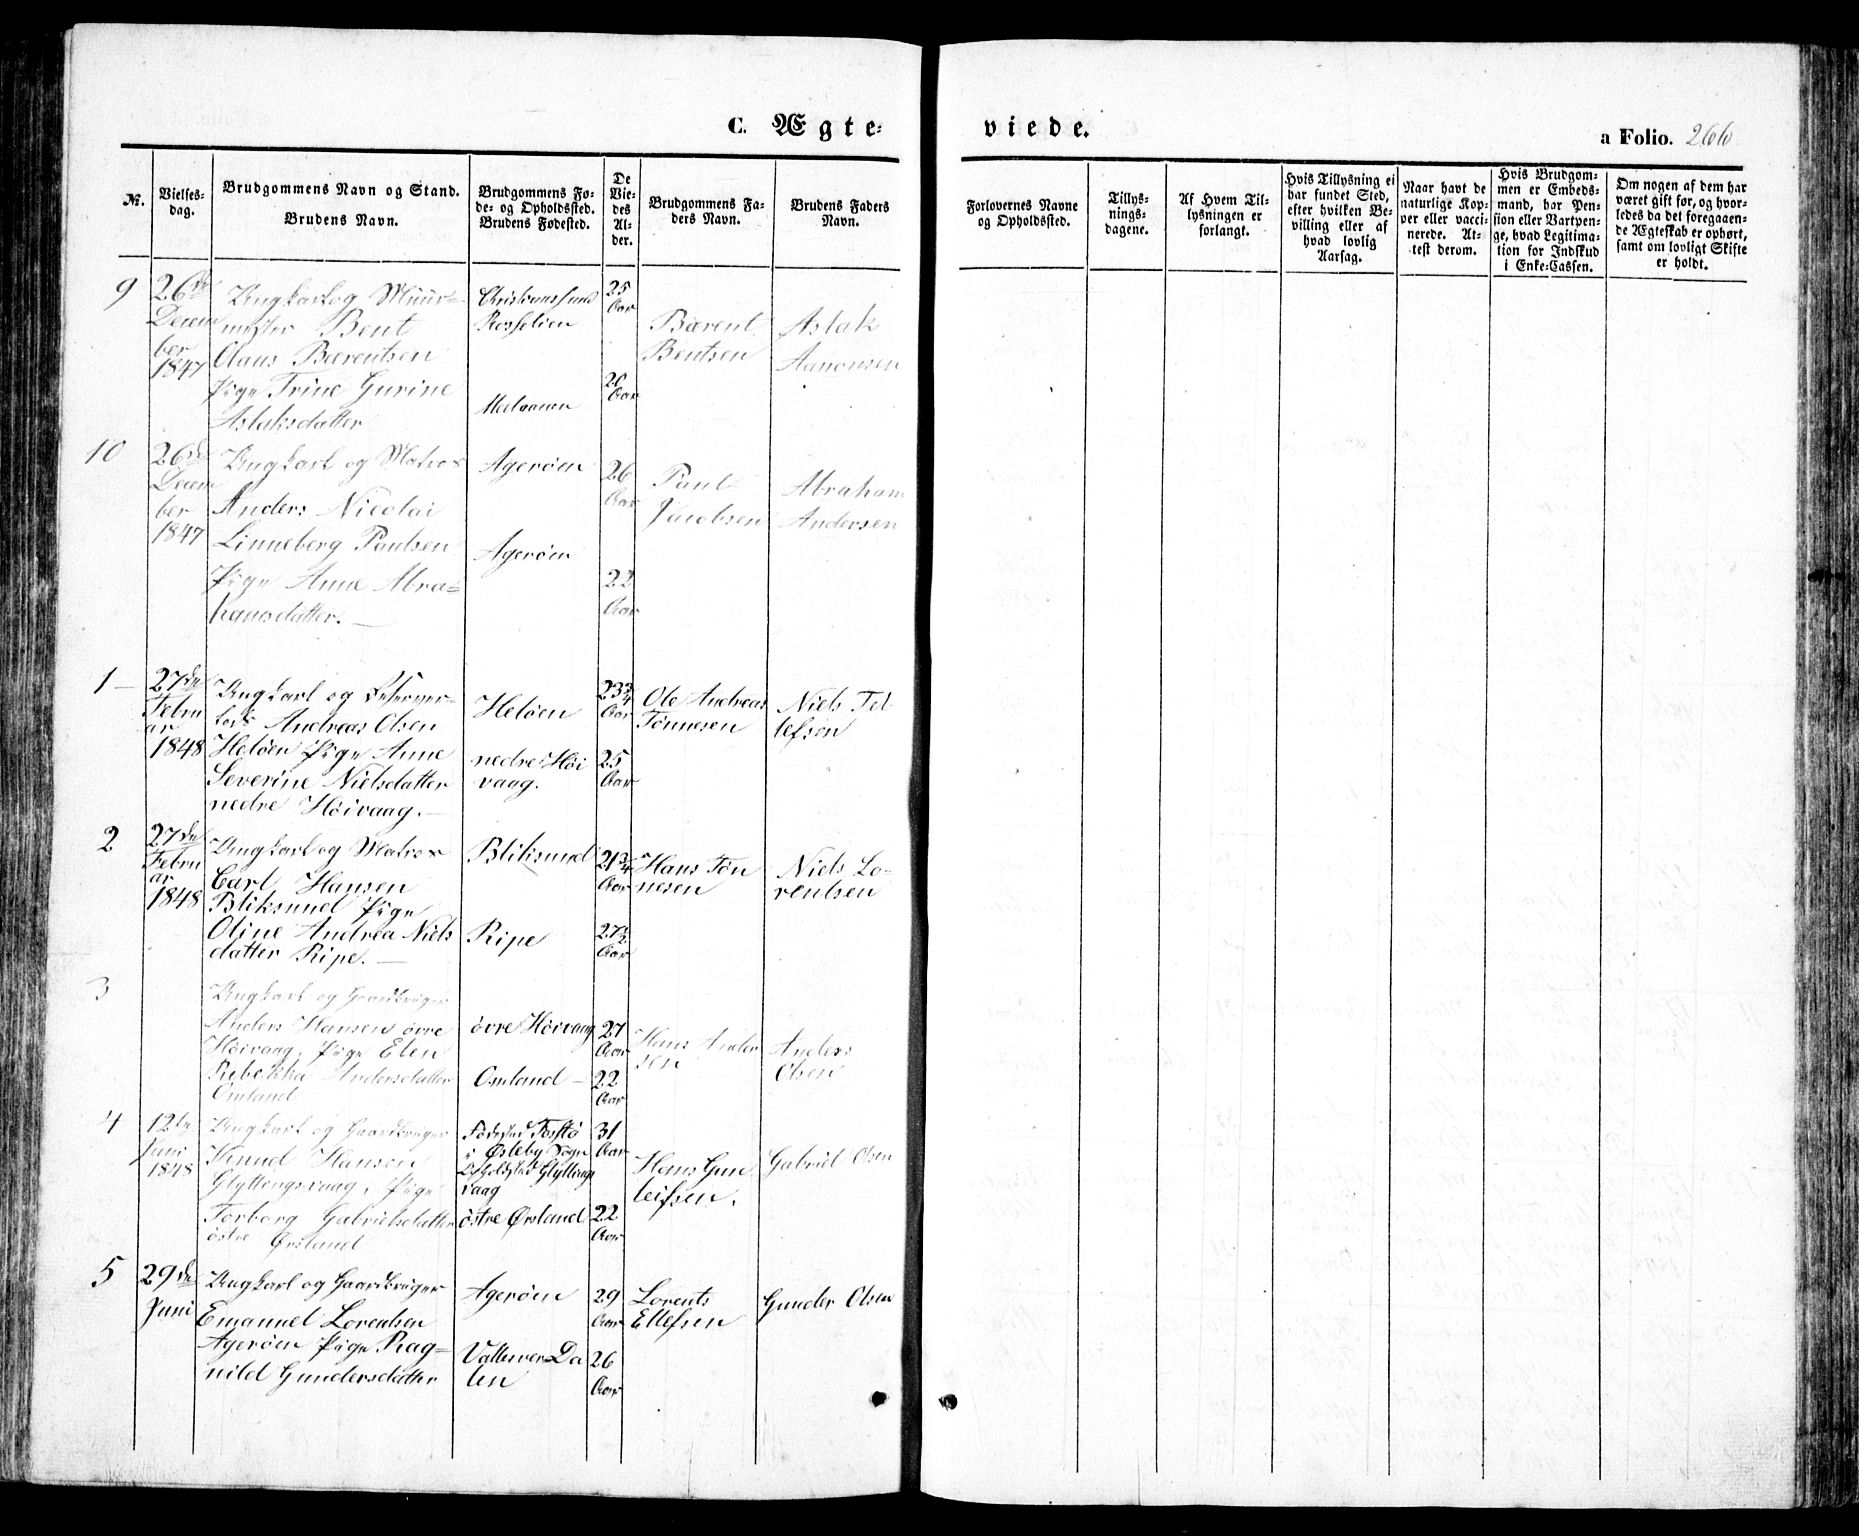 C. Ægte-
viede.
a Folio. 266
№.
Vielses-
dag.
Brudgommens Navn og Stand.
Brudens Navn.
Brudgommens Fø-
de- og Opholdssted.
Brudens Fødested.
De
Vie-
des
Al-
der.
Brudgommens Fa-
ders Navn.
Brudens Faders
Navn.
Forlovernes Navne
og Opholdssted.
Tillys-
nings-
dagene.
Af Hvem Til-
lysningen er
forlangt.
Hvis Tillysning ei
har fundet Sted,
efter hvilken Be-
villing eller af
hvad lovlig
Aarsag.
Naar havt de
naturlige Kop-
per eller vacci-
nerede. At-
test derom.
Hvis Brudgom-
men er Embeds-
mand, har Pen-
sion eller Vartpen-
ge, hvad Legitima-
tion for Indskud
i Enke-Cassen.
Om nogen af dem har
været gift før, og hvor-
ledes da det foregaaen-
de Ægteskab er ophørt,
samt om lovligt Skifte
er holdt.
9
26de
Decem
ber
1847
Ungkarl og Muur-
mester Bent
Claus Bærentsen
Pige Trine Gurine
Aslaksdatter
Christianssund
25
Aar
20
Aar
Bærent
Bentsen
Aslak
Aanonsen
10
26de
Decem
ber
1847
Ungkarl og Matros
Anders Nicolai
Linneberg Paulsen
Pige Anne Abra-
hamsdatter.
Agerøen
Agerøen
26
Aar
22
Aar
Paul
Jacobsen
Abraham
Andersen
1
27de
Febru
ar
1848
Ungkarl og
Andreas Olsen
Heløen Pige Anne
Severine Nielsdatter
nedre Höivaag.
Heløen
nedre Höi
vaag.
23¾
Aar
25
Aar
Ole Andreas
Tönnesen
Niels Tel
lefsen
2
27de
Febru
ar
1848
Ungkarl og Matros
Carl Hansen
Bliksund Pige
Oline Andrea Niels
datter Ripe.
Bliksund
Ripe
21¾
Aar
27½
Aar
Hans Tön
nesen
Niels Lo-
rentsen
3
Ungkarl og Gaardbruger
Anders Hansen övre
Höivaag, Pige Elen
Rebekka Andersdatter
Omland
övre Höivaag
Omland
27
Aar
22
Aar
Hans Ander
sen
Anders
Olsen
4
12te
Juni
1848
Ungkarl og Gaardbruger
Knud Hansen
Glyttingsvaag, Pige
Torborg Gabrielsdatter
östre Ørsland
Födested
i Sogn
Opholdsted Glyttings
vaag
östre Ørsland
31
Aar
22
Aar
Hans Gun
leifsen.
Gabriel Olsen
5
29de
Juni
Ungkarl og Gaardbruger
Emanuel Lorentsen
Agerøen Pige Rag-
nild Gundersdatter
Agerøen
Vallesver Da
len
29
Aar
26
Aar
Lorents
Ellefsen
Gunder Olsen